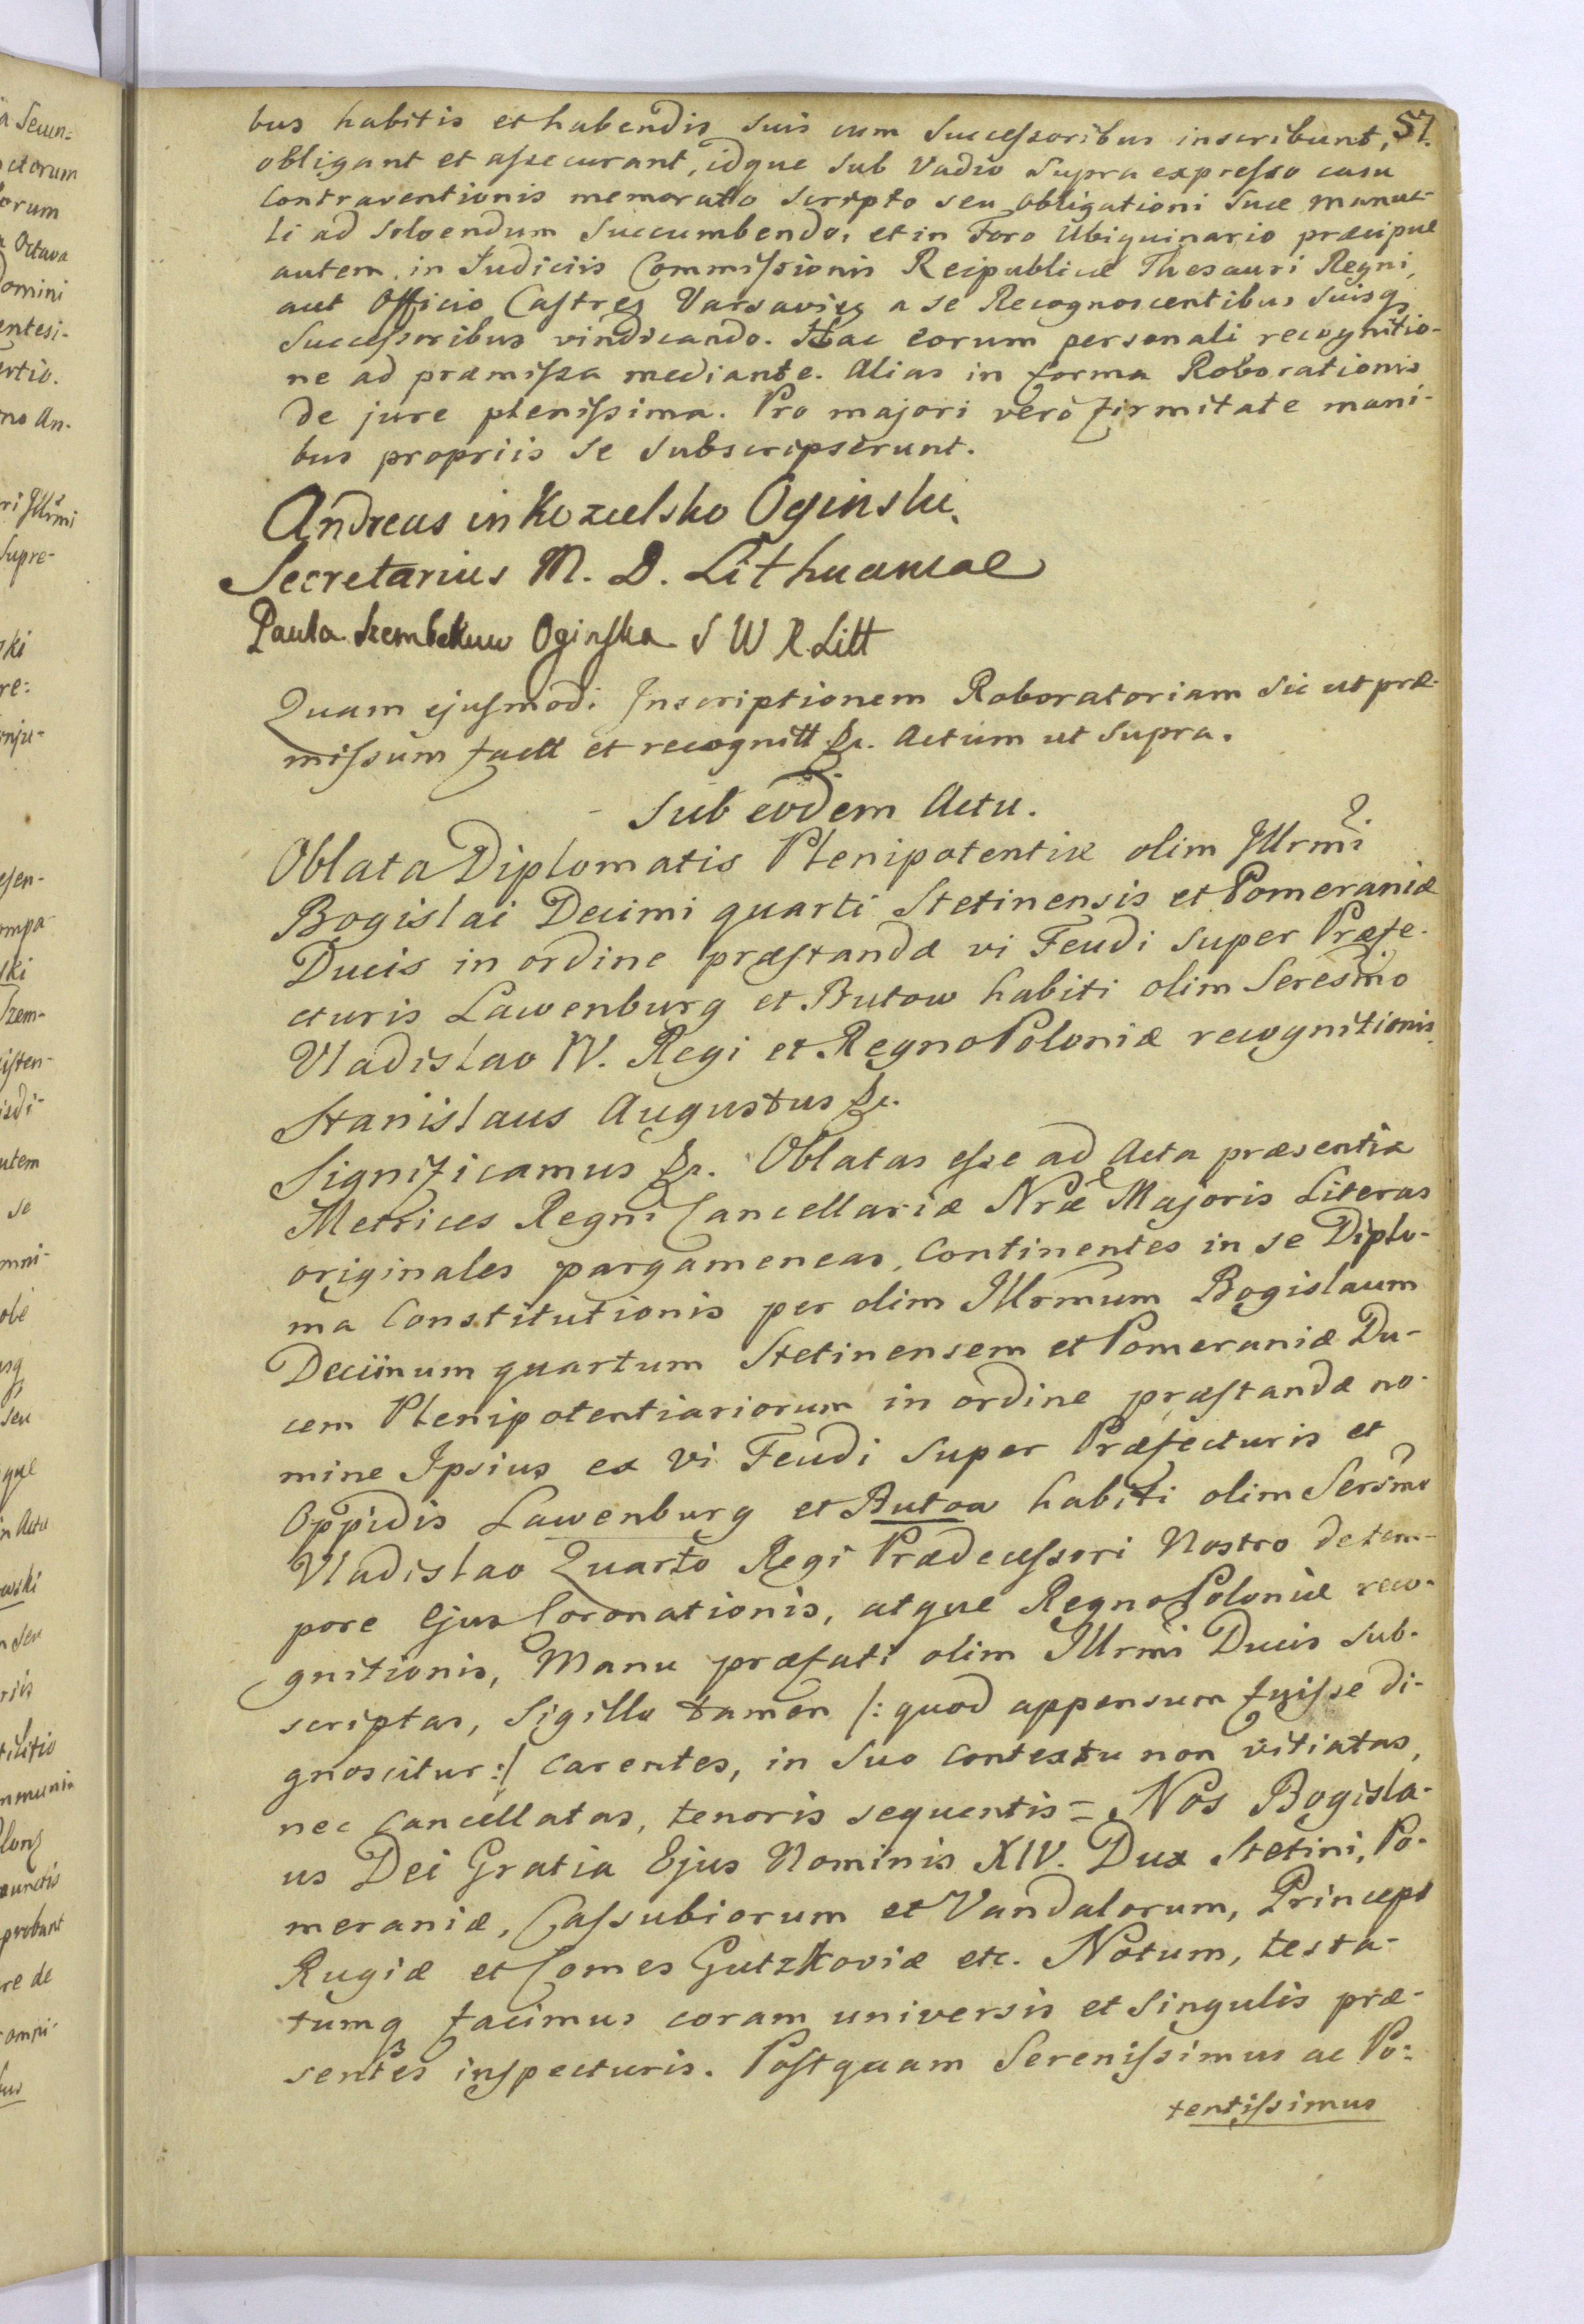 57.
bus habitis et habendis suis cum Successoribus inscribunt,
obligant et assecurant, idque sub Vadio supra expresso casu
contraventionis memorato scripto seu obligationi suæ manua-
li ad solvendum succumbendo, et in Foro Ubiquinario præcipue
autem in Judiciis Commissionis Reipublicæ Thesauri Regni,
aut Officio Castren Varsavien a se Recognoscentibus suisq
Successoribus vindicando. Hac eorum personali recognitio-
ne ad præmissa mediante. Alias in forma Roborationis
de jure plenissima. Pro majori verò firmitate mani-
bus propriis se subscripserunt.
Andreas in Kozielsko Oginski
Secretarius M. D. Lithuaniae
Paula Szembekuw Oginska S W X Litt
Quam ejusmodi Inscriptionem Roboratoriam sic ut præ-
missum factt et recognitt &c. Actum ut supra.
Sub eodem Actu.
Oblata Diplomatis Plenipotentiæ olim Illrmi
Bogislai Decimi quarti Stetinensis et Pomeraniæ
Ducis in ordine præstandæ vi Feudi super Præfe-
cturis Lawenburg et Butow habiti olim Seresmo
Vladislao IV. Regi et Regno Poloniæ recognitionis.
Stanislaus Augustus &c.
Significamus &c. Oblatas esse ad Acta præsentia
Metrices Regni Cancellariæ Nræ Majoris Literas
originales pargameneas, continentes in se Diplo-
ma Constitutionis per olim Illrmum Bogislaum
Decimum quartum Stetinensem et Pomeraniæ Du-
cem Plenipotentiariorum in ordine præstandæ no-
mine Ipsius ex vi Feudi super Præfecturis et
Oppidis Lawenburg et Butow habiti olim Sersmo
Vladislao Quarto Regi Prædecessori Nostro de tem-
pore Ejus Coronationis, atque Regno Poloniæ reco-
gnitionis, Manu præfati olim Illrmi Ducis sub-
scriptas, Sigillo tamen /: quod appensum fuisse di-
gnoscitur :/ carentes, in suo contextu non vitiatas,
nec cancellatas, tenoris sequentis = Nos Bogisla-
us Dei Gratia Ejus Nominis XIV. Dux Stetini, Po-
meraniæ, Cassubiorum et Vandalorum, Princeps
Rugiæ et Comes Gutzkoviæ etc. Notum, testa-
tumq facimus coram universis et singulis præ-
sentes inspecturis. Postquam Serenissimus ac Po-
tentissimus